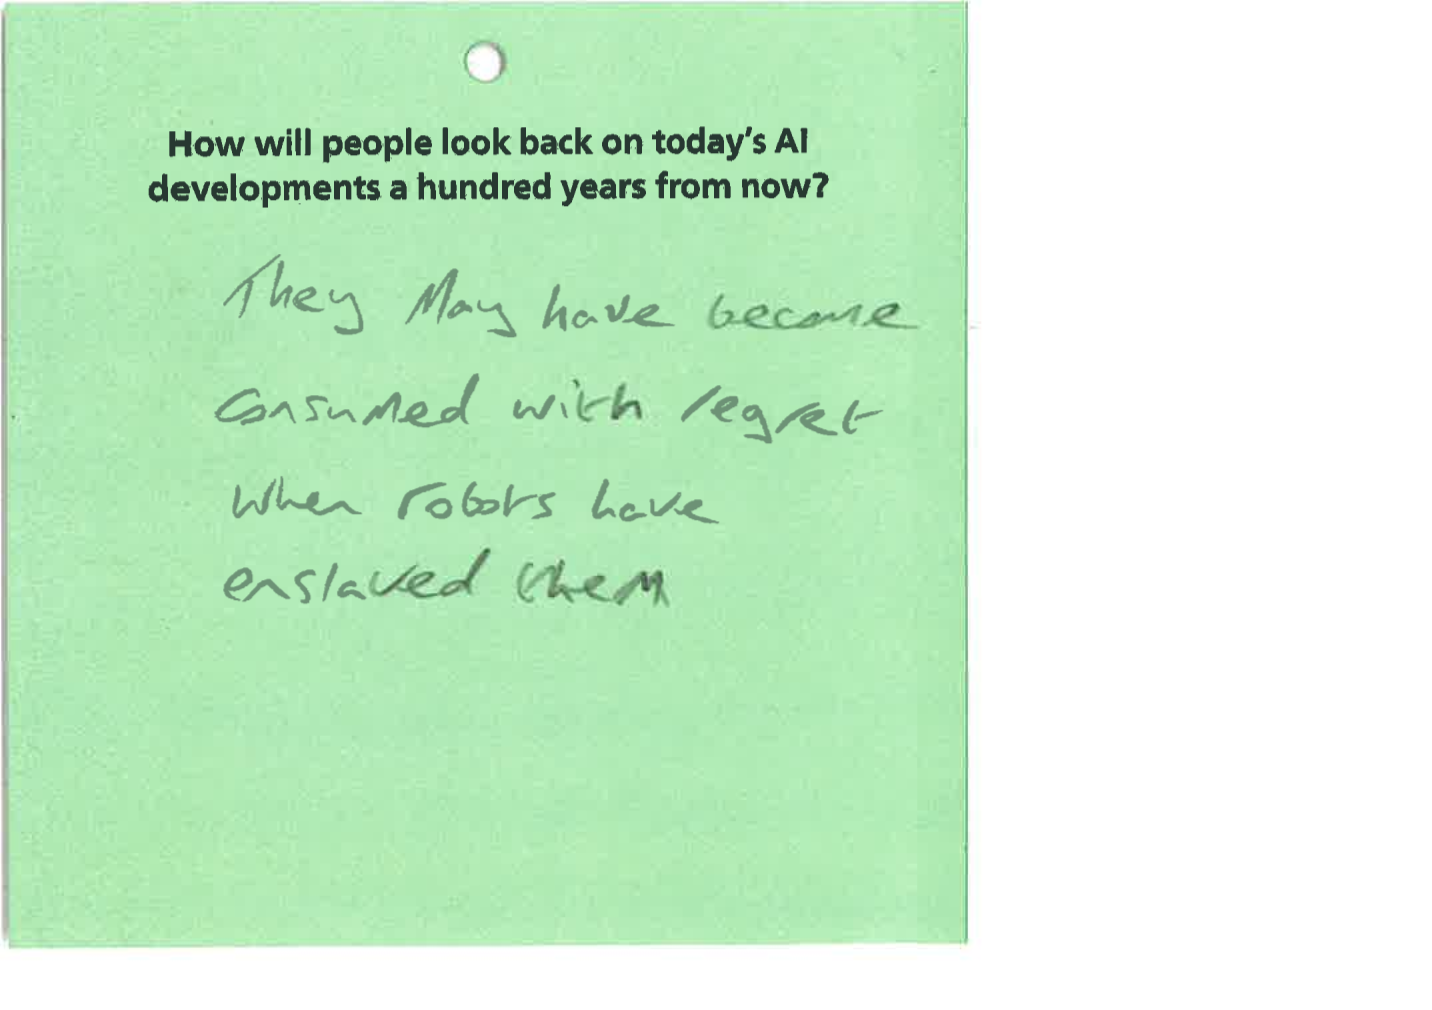 How will people look back on today's AI
developments a hundred years from now?
They May have become
consumed with regret
when robots have
enslaved them